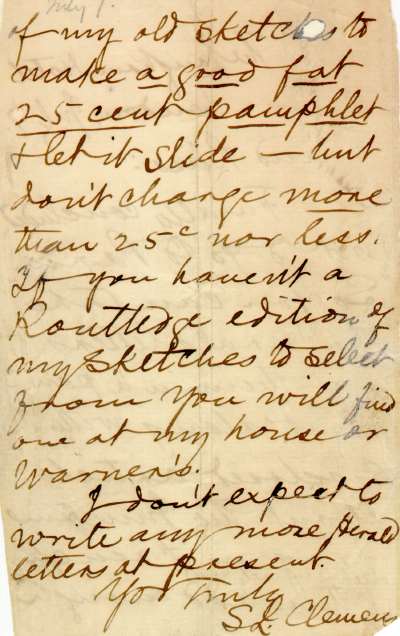 July 1.
of my old sketches to
make a good fat
25 cent pamphlet
& let it slide — but
don't charge more
than 25c nor less.
If you haven't a
Routledge edition of
my sketches to select
from you will find
one at my house or
Warner's.
I don't expect to
write any more Herald
letters at present.
Yrs Truly
S L. Clemens